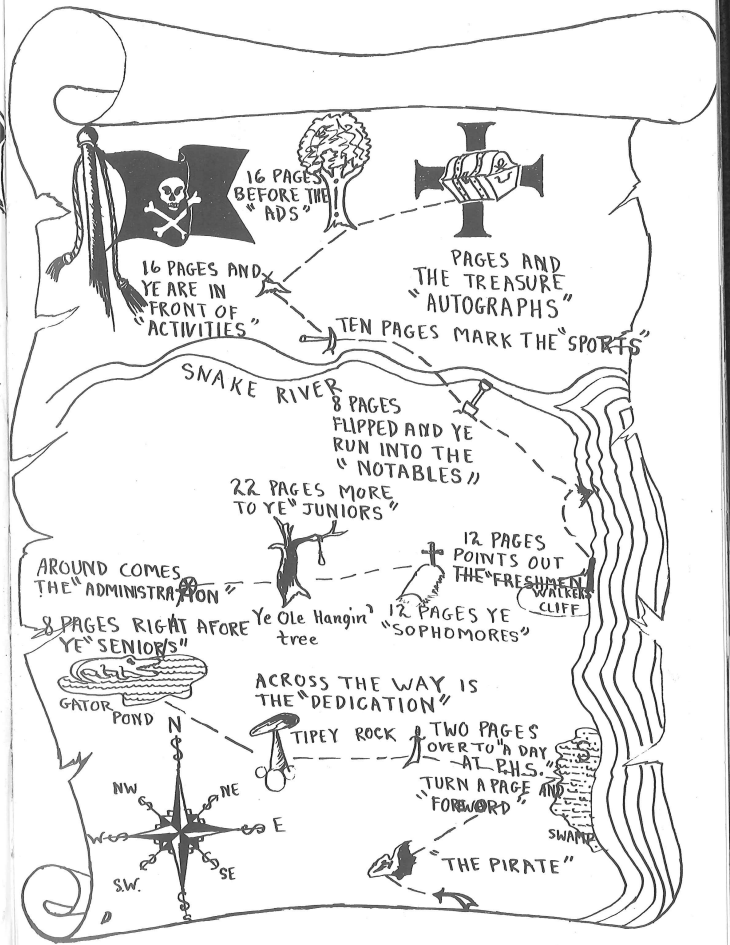 16 PAGES
BEFORE THE
"ADS"
PAGES AND
THE TREASURE
"AUTOGRAPHS"
16 PAGES AND
YE ARE IN
FRONT OF
"ACTIVITIES"
TEN PAGES MARK THE "SPORTS"
SNAKE RIVER
8 PAGES
FLIPPED AND YE
RUN INTO THE
"NOTABLES"
22 PAGES MORE
TO YE "JUNIORS"
12 PAGES
POINTS OUT
THE "FRESHMEN"
WALKERS
CLIFF
AROUND COMES
THE "ADMINISTRATION"
Ye Ole Hangin'
tree
12 PAGES YE
"SOPHOMORES"
8 PAGES RIGHT AFORE
YE "SENIORS"
GATOR
POND
ACROSS THE WAY IS
THE "DEDICATION"
TIPEY ROCK
TWO PAGES
OVER TO "A DAY
AT P.H.S."
TURN A PAGE AND
"FORWORD"
S
SWAMP
N
NW
NE
W
E
S.W.
SE
S
"THE PIRATE"